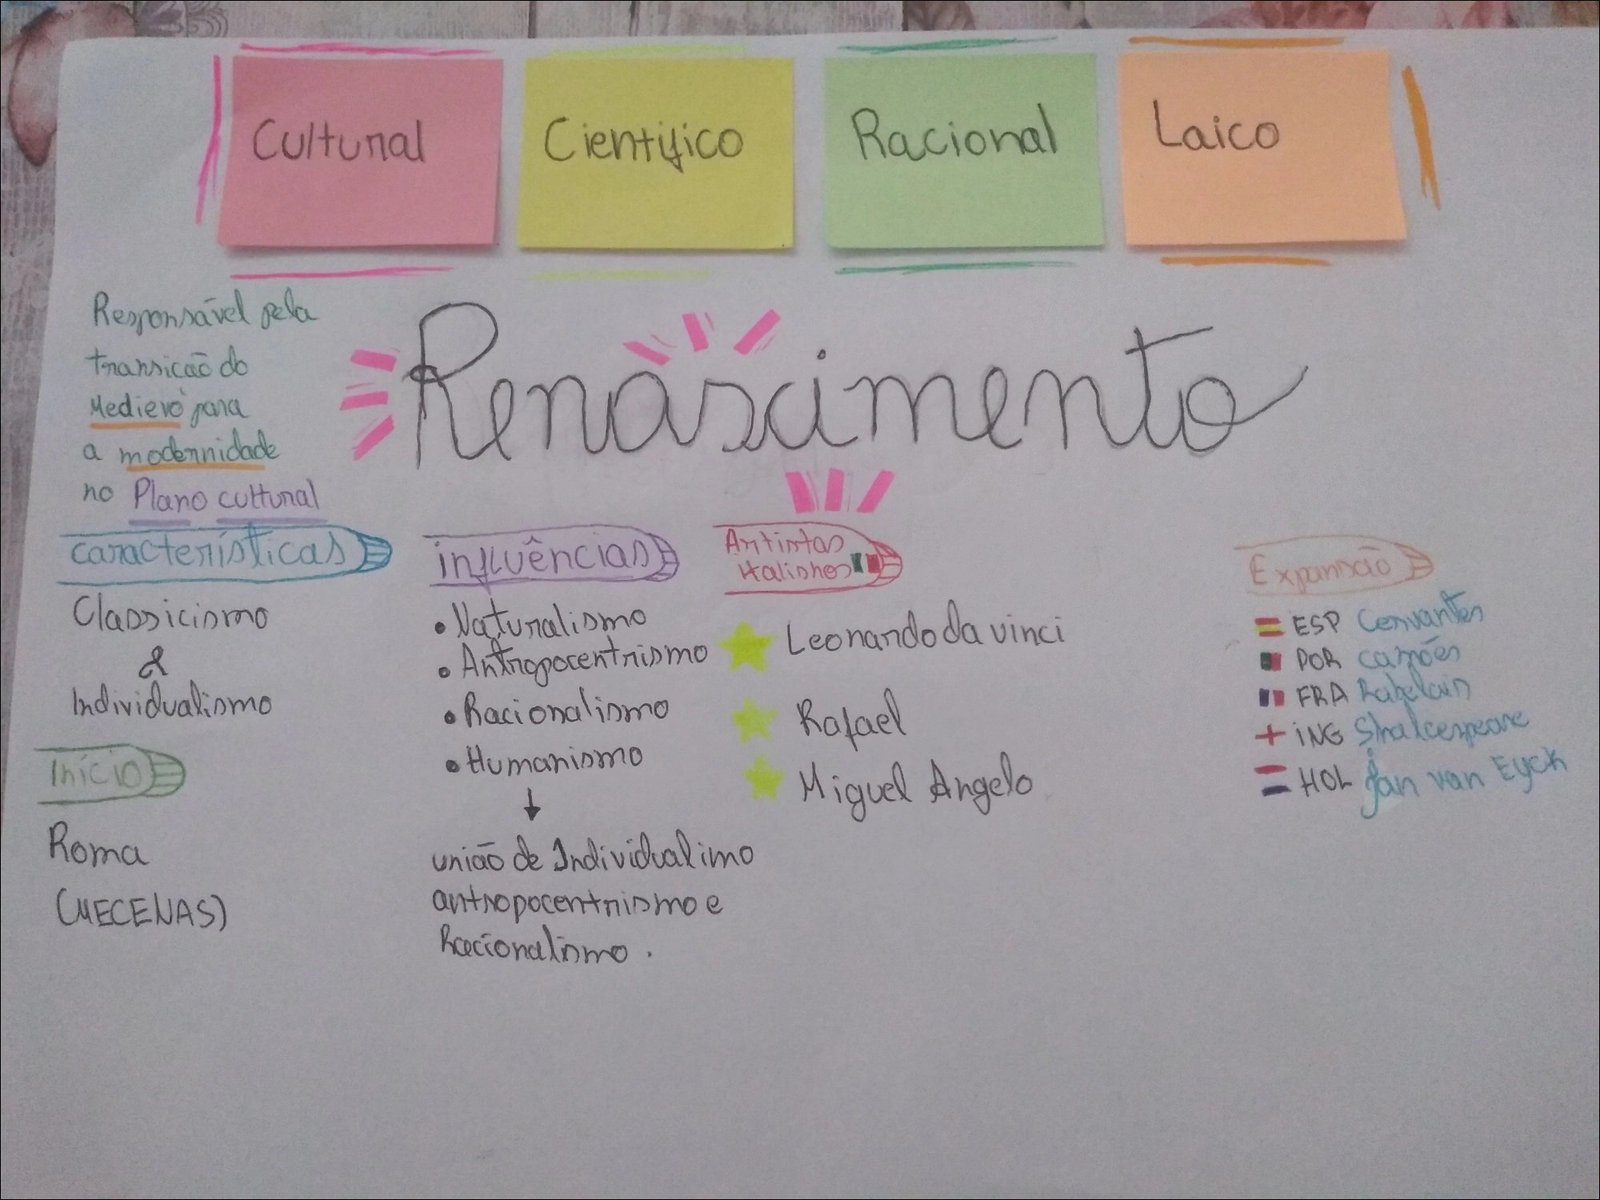 Cultural
Científico
Racional
Laico
Responsável pela
transicão do
Medievo para
a modernidade
no Plano cultural
Renascimento
características
Classicismo
&
Individualismo
Início
Roma
(MECENAS)
influências
• Naturalismo
• Antropocentrismo
• Racionalismo
• Humanismo
↓
união de Individualimo
antropocentrismo e
Racionalismo.
Artistas
Leonardo da vinci
Rafael
Miguel Angelo
Expansão
ESP Cervantes
POR camões
FRA Rabelais
iNG
HOL Jan van Eyck